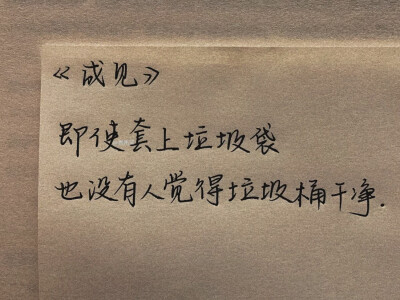 《成见》
即使套上垃圾袋
也没有人觉得垃圾桶干净.